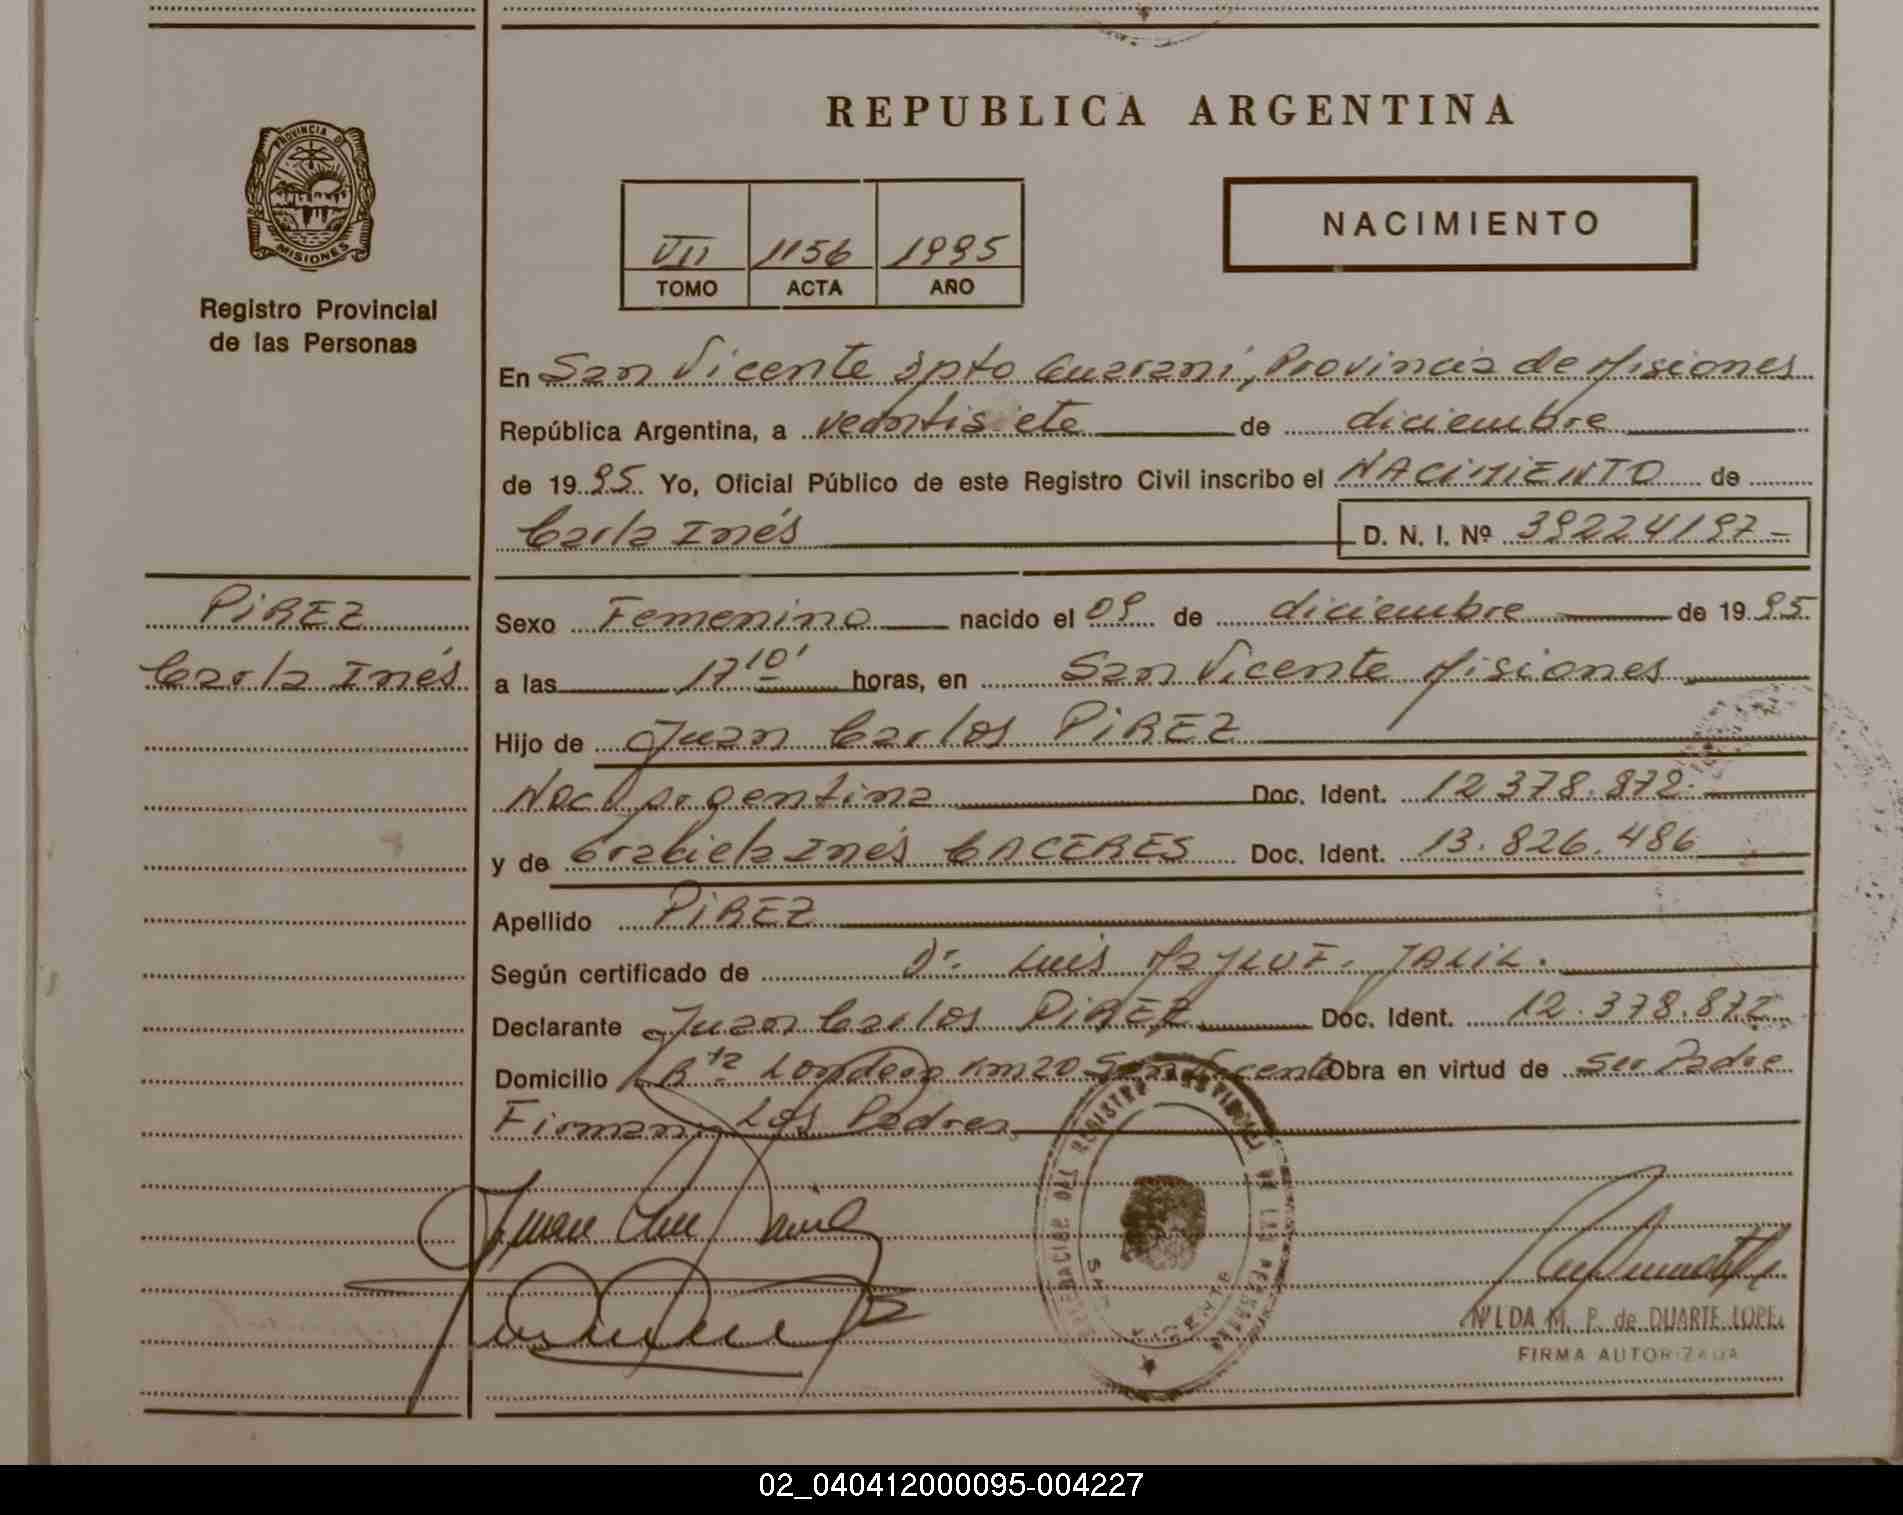 REPUBLICA ARGENTINA
PROVINCIA D
MISIONES
Registro Provincial
de las Personas
VII 1156 1995
TOMO ACTA AÑO
NACIMIENTO
En San Vicente Dpto Guaraní, Provincia de Misiones
República Argentina, a veintisiete de diciembre
de 1995 Yo, Oficial Público de este Registro Civil inscribo el NACIMIENTO de
Carla Inés D. N. I. Nº 39224197-
PIREZ
Carla Inés
Sexo Femenino nacido el 09 de diciembre de 1995.
a las 17 10' horas, en San Vicente Misiones
Hijo de Juan Carlos PIREZ
Nac Argentina Doc. Ident. 12.378.872.
y de Graciela Inés CACERES Doc. Ident. 13.826.486
Apellido PIREZ
Según certificado de Dr. Luis JALIL.
Declarante Juan Carlos PIREZ Doc. Ident. 12.378.872
Domicilio Km 20 San Vicente Obra en virtud de Ser Padre
Firman Los Padres
REGISTRO PROVINCIAL DE LAS PERSONAS
VICENTE
NILDA M. P. de DUARTE LOPE
FIRMA AUTORIZADA
02_040412000095-004227